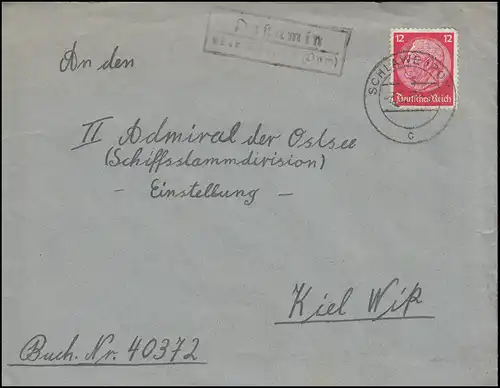 Pustamin
über (Pom)
12 12
Deutsches Reich
SCHLAWE
c
An den
II Admiral der Ostsee
(Schiffsstammdivision)
- Einstellung -
Kiel Wik
Buch. Nr. 40372